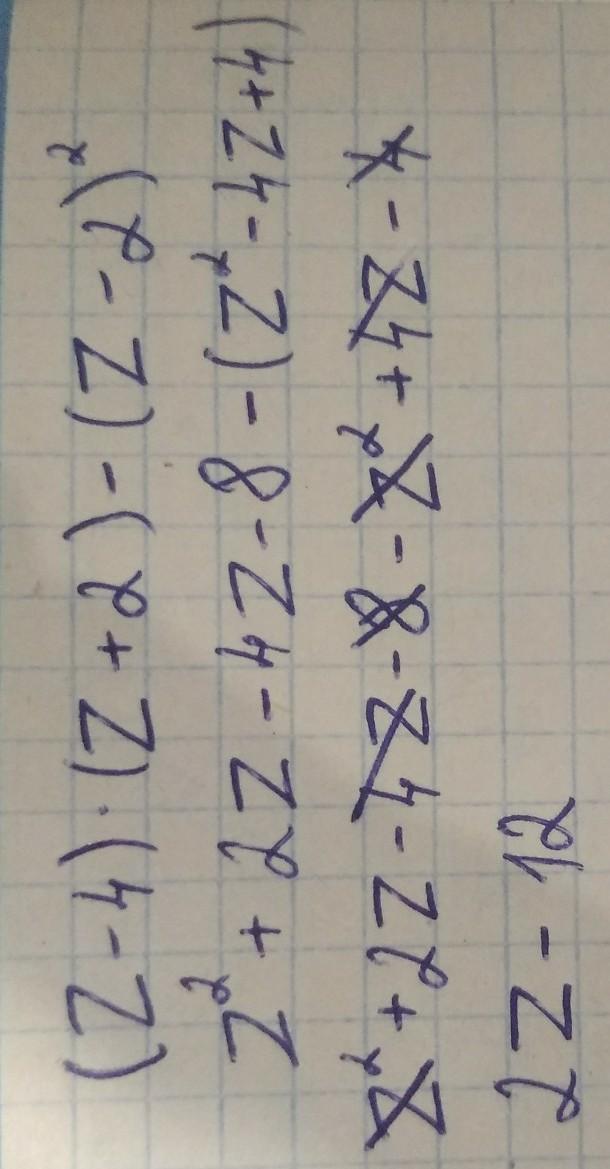 (Z-4)·(Z+2)-(Z-2)²
Z²+2Z-4Z-8-(Z²-4Z+4)
Z²+2Z-4Z-8-Z²+4Z-4
2Z-12